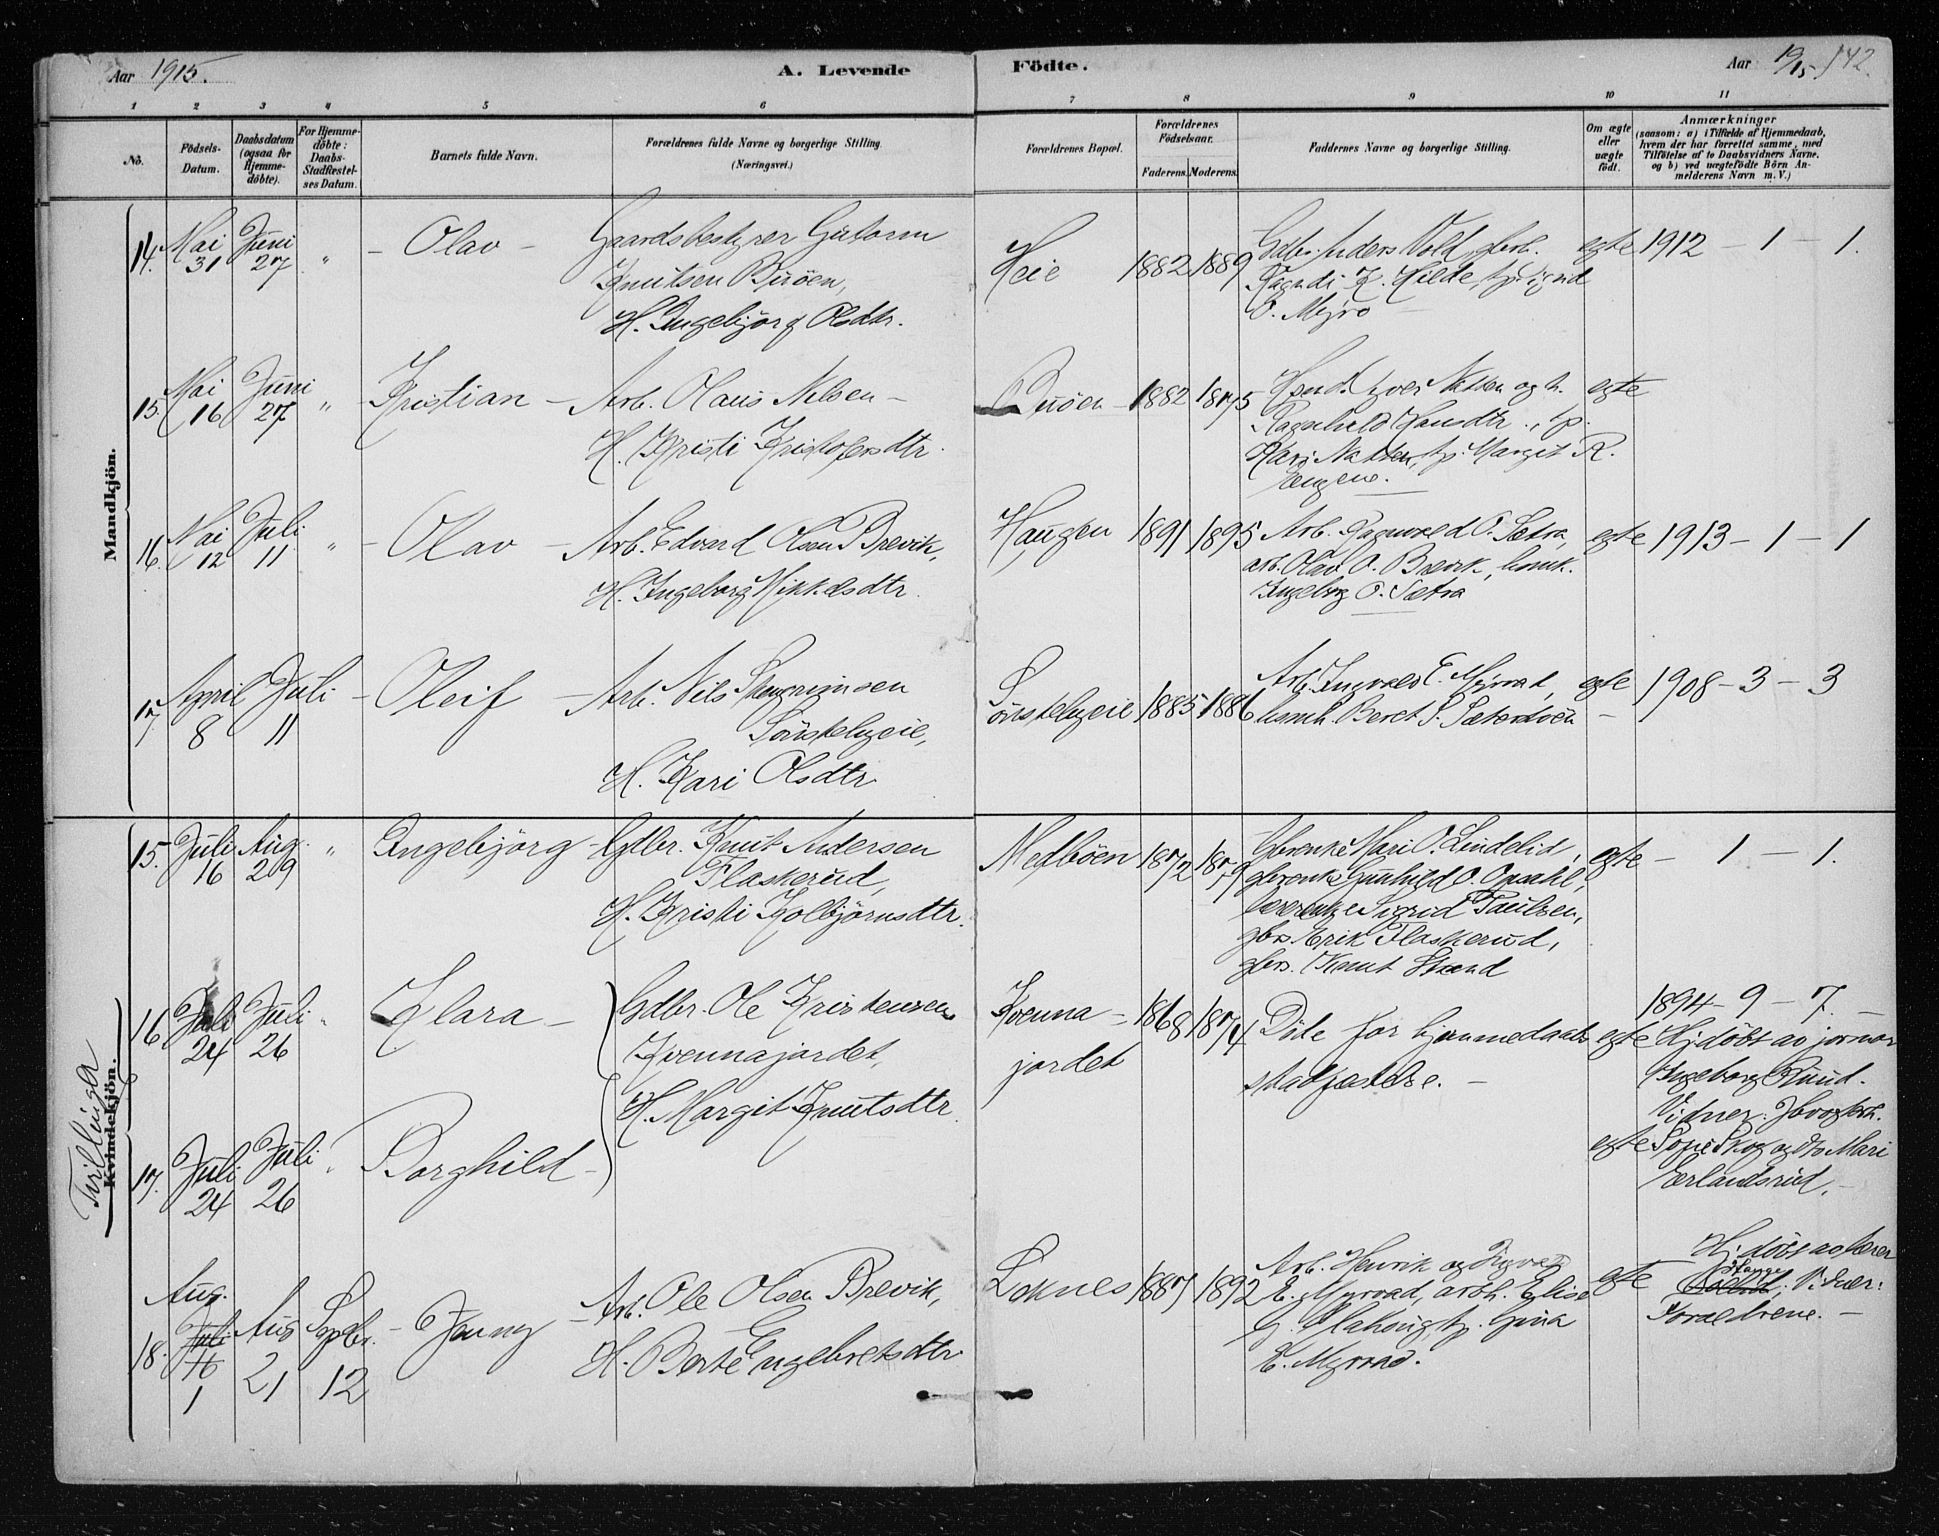 Aar 1915.
A. Levende Födte.
Aar 19/15. 142.
1 2 3 4 5 6 7 8 9 10 11
No.
Födsels-Datum.
Daabsdatum (ogsaa for Hjemme-döbte).
For Hjemme-döbte: Daabs-Stadfæstel-ses Datum.
Barnets fulde Navn.
Forældrenes fulde Navne og borgerlige Stilling.
(Næringsvei.)
Forældrenes Bopæl.
Forældrenes Födselsaar.
Faderens. Moderens.
Faddernes Navne og borgerlige Stilling.
Om ægte eller uægte födt.
Anmærkninger
(saasom: a) i Tilfælde af Hjemmedaab,
hvem der har forrettet samme, med
Tilföielse af to Daabsvidners Navne,
og b) ved uægtefödte Börn An-
melderens Navn m. V.)
Mandkjön.
14. Mai 31 Juni 27 " - Olav -
Gaardsbestyrer Gutorm
Knutsen Buöen,
H. Ingebjörg Olsdtr.
Heie 1882 1889
Gdbr. Anders Vold,
Hilde,
O. Myro
egte 1912 - 1 - 1.
15. Mai 16 Juni 27 " Kristian -
Arb. Olaus Nelsen -
H. Kristi Kristofersdtr.
Buöen - 1882 1875
Natten og h.
Ragnhild Hansdtr., tp.
Kari Natten, tp. Margit R.
Engene.
egte
16. Mai 12 Juli 11 " - Olav -
Arb. Edvard Olsen Brevik,
H. Ingeborg Mikkelsdtr.
Haugen 1891 1895
Arb. Ragnvald O. Sætra,
arb. Olav O. Brevik,
Ingeborg O. Sætra
egte 1913 - 1 - 1
17. April 8 Juli 11 - Oleif -
Arb. Nils
Sörstelygeie,
H. Kari Olsdtr
Sörstelygeie 1885 1886
Arb. Ingvald E. Myrvad,
Beret S.
egte - 1908 - 3 - 3
Kvindekjön.
15. Juli 16 Aug. 29 " Ingebjörg -
Gdbr. Knut Andersen
Flaskerud,
H. Kristi Kolbjörnsdtr.
Medböen 1872 1879
Gbrenke Mari O. Lindelid,
gbrenke Gunhild O. Opsahl,
Sigrid Paulsen,
gbr. Erik Flaskerud,
gbr. Knut Strand
egte - 1 - 1.
Trillinger
16. Juli 24 Juli 26 " Klara -
Gdbr. Ole Kristensen
Kvennajordet,
H. Margit Knutsdtr.
Kvenna-
jordet
1868 1874
Döde för hjemmedaabs
stadfæstelse. -
egte
1894 - 9 - 7.
Hj.döbt av jormor
Ingeborg Ruud.
Vidner:
Skog og Mari
Erlandsrud. -
17. Juli 24 Juli 26 " Borghild -
egte
18. Aug. Juli 16 1 Aug 21 Septbr. 12 - Jenny -
Arb. Ole Olsen Brevik,
H. Berte Engebretsdtr.
Loknes 1887 1892
Arb. Henrik og Ingvald
E. Myrvad, Elise
G. tp. Gina
E. Myrvad.
egte
Hj.döbt av lærer
Stange. Vidner:
Foraeldrene. -